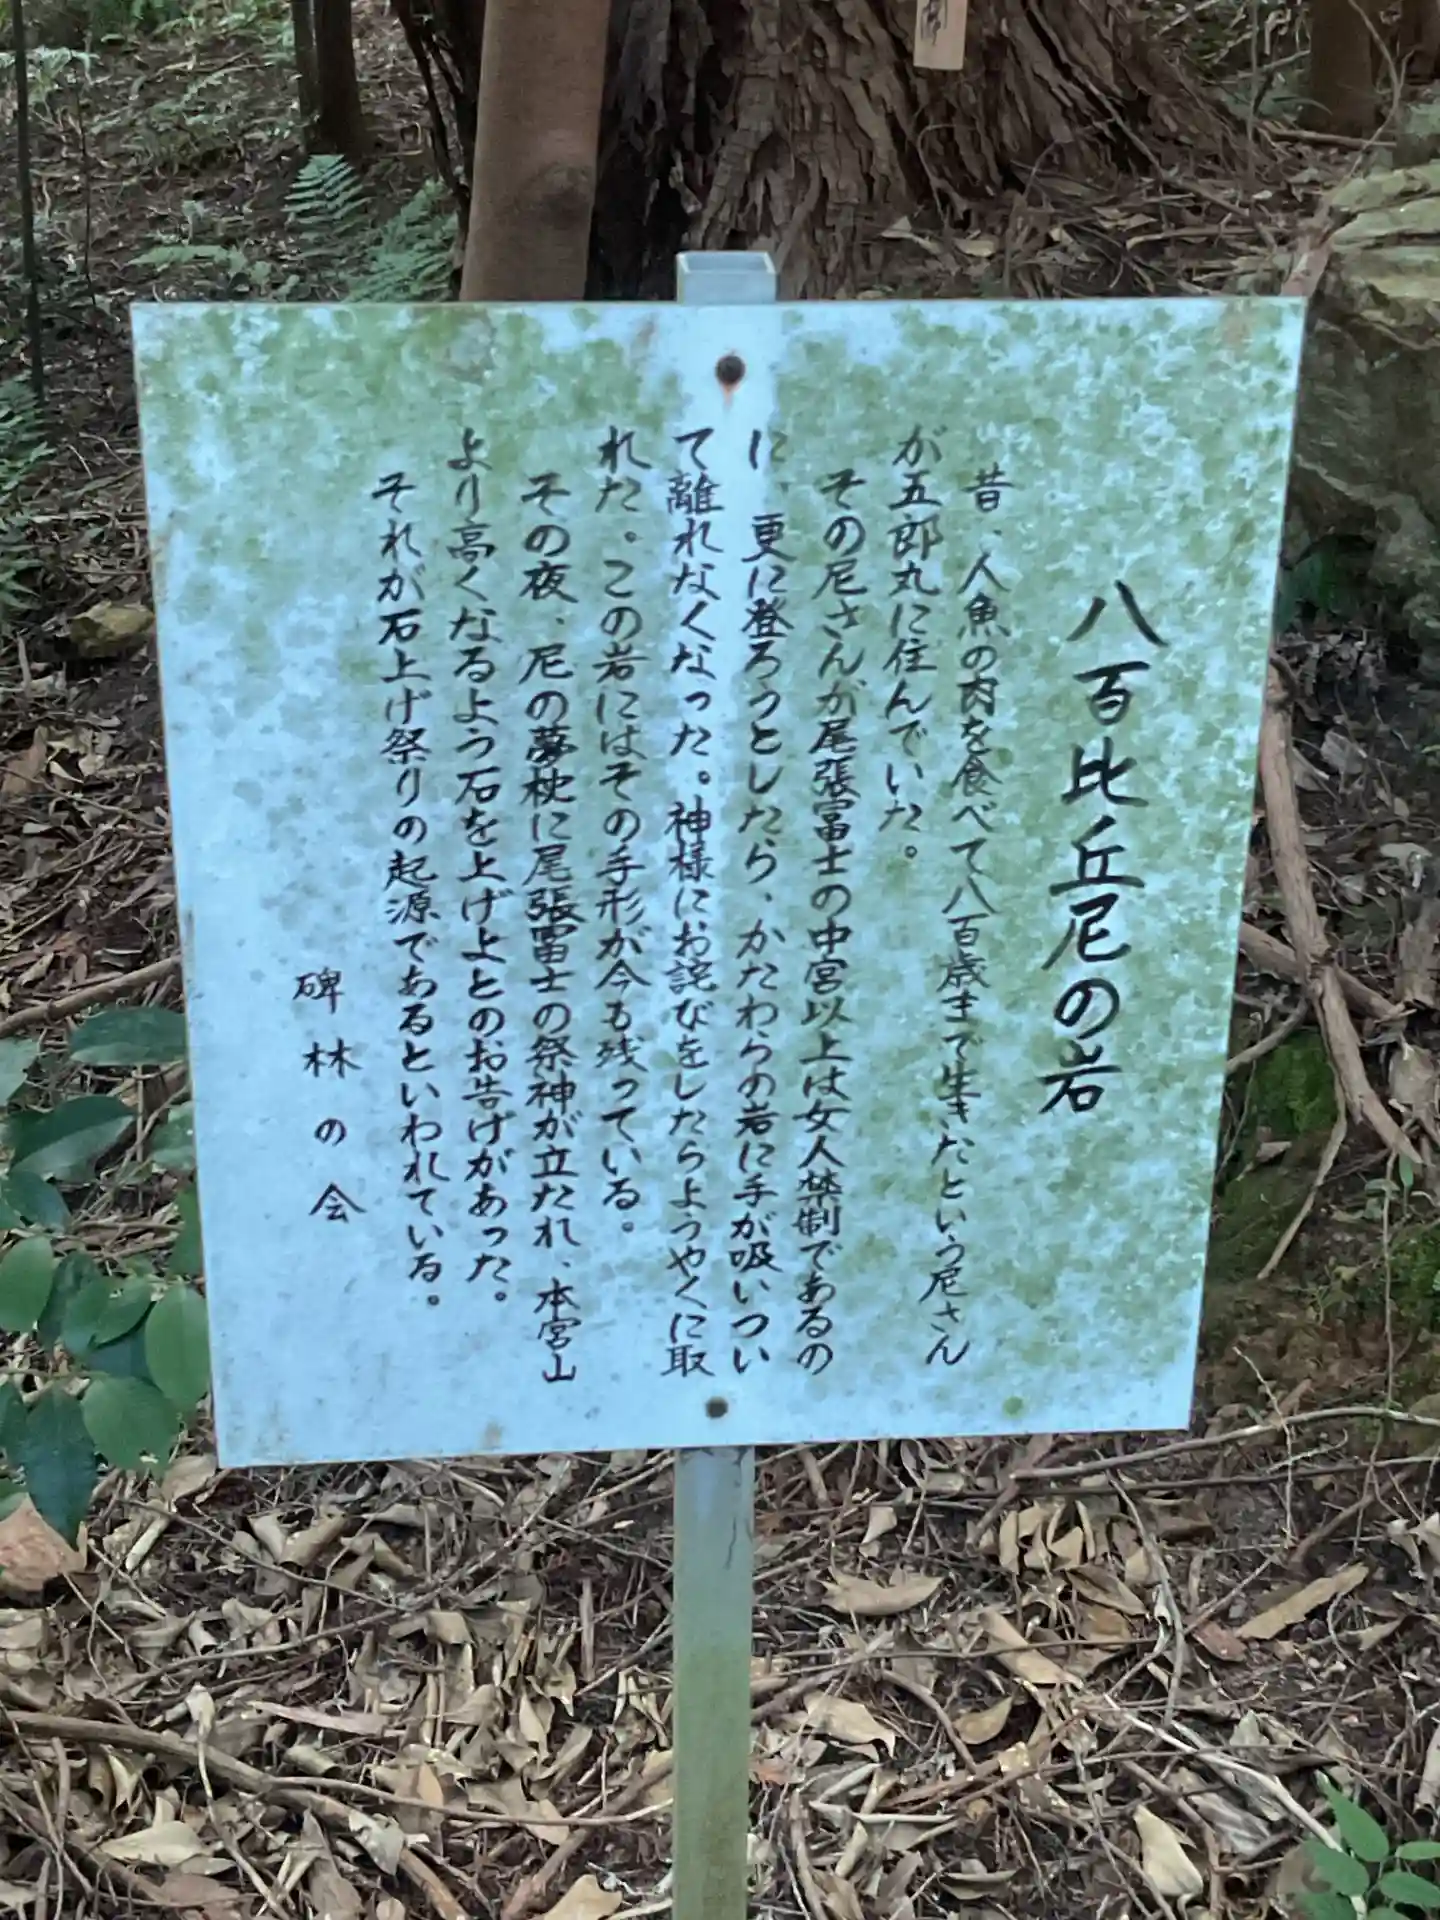 八百比丘尼の岩
昔、人魚の肉を食べて八百歳まで生きたという尼さん
が五郎丸に住んでいた。
その尼さんが尾張冨士の中宮以上は女人禁制であるの
に、更に登ろうとしたら、かたわらの岩に手が吸いつい
て離れなくなった。神様にお詫びをしたらようやくに取
れた。この岩にはその手形が今も残っている。
その夜、尼の夢枕に尾張冨士の祭神が立たれ、本宮山
より高くなるよう石を上げよとのお告げがあった。
それが石上げ祭りの起源であるといわれている。
碑林の会